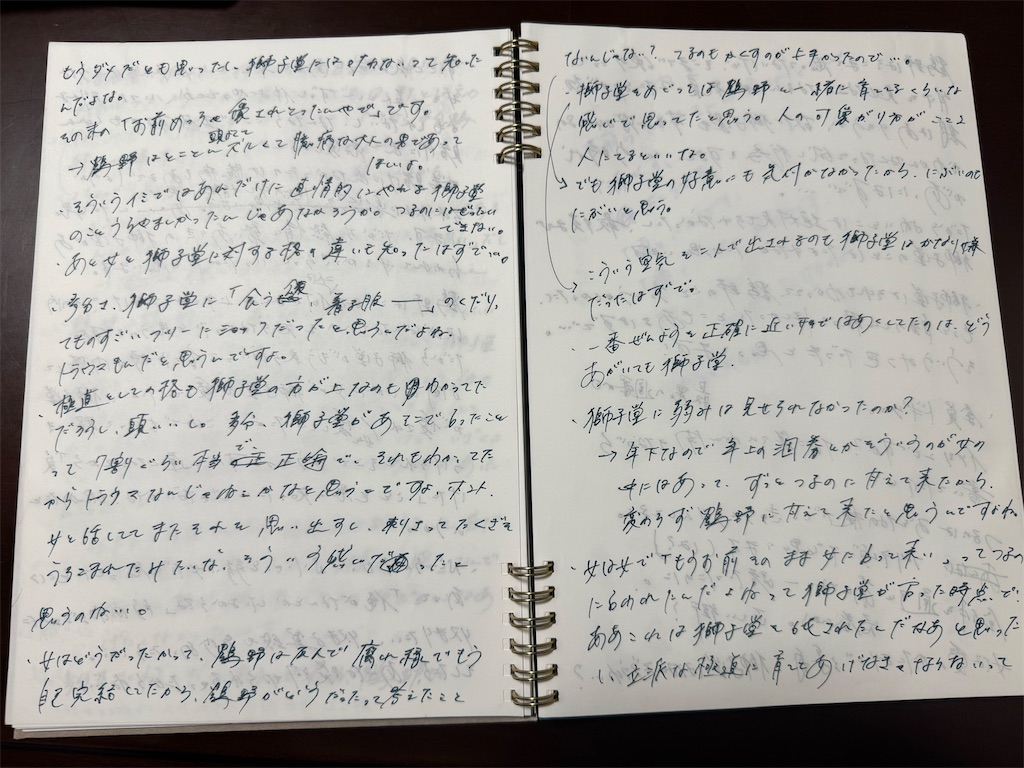 もうダメだとも思ったし、獅子堂には叶わないって知った
んだよな。
その末の「お前めっちゃ愛されとったんやで」です。
頭よくて
→鶴野はとことんズルくて臆病な大人の男であって
ほしいよ。
・そういうイミではあれだけに直情的にやれる獅子堂
のことうらやましかったんじゃあなかろうか。つるのにはぜったい
できない。
・あと女と獅子堂に対する格の違いも知ったはずで…。
・多分さ、獅子堂に「合う 着る服――」のくだり、
てものすごいフツーにショックだったと思うんだよね。
トラウマもんだと思うんですよ。
・極道としての格も獅子堂の方が上なのもわかってた
だろうし、頭いいし。多分、獅子堂があそこで言ったこと
って7割ぐらい本当で正論で、それもわかってた
からトラウマなんじゃねーかなと思うことですよ、ホント。
女と話しててまたそれを思い出すし、刺さってたくぎを
うちこまれたみたいな、そういう感じだったと
思うのね…。
・女はどうだったかって、鶴野は友人で腐れ縁でもう
自己完結してたから、鶴野がどうだったって考えたこと
ないんじゃない? つるのもかくすのが上手かったので…。
獅子堂をめぐっては鶴野と一緒に育ててるくらいな
感じで思ってたと思う。人の可愛がり方がここ2
人にてるといいな。
→でも獅子堂の好意にも気付かなかったから、にぶいのも
にぶいと思う。
→こういう空気を二人で出されるのも獅子堂はかなり嫌
だったはずで。
・一番ぜんようを正確に近い形ではあくしてたのは、どう
あがいても獅子堂。
・獅子堂に弱みは見せられなかったのか?
→年下なので年上の とかそういうのが女の
中にはあって、ずっとつるのに甘えて来たから、
変わらず鶴野に甘えて来たと思うんですよね。
・女は女で「もうお前そのまま女になって来い」ってつるの
に言われたんだよねって獅子堂が言った時点で、
ああこれは獅子堂を されたんだなあと思った
し立派な極道に育ててあげなきゃならないって